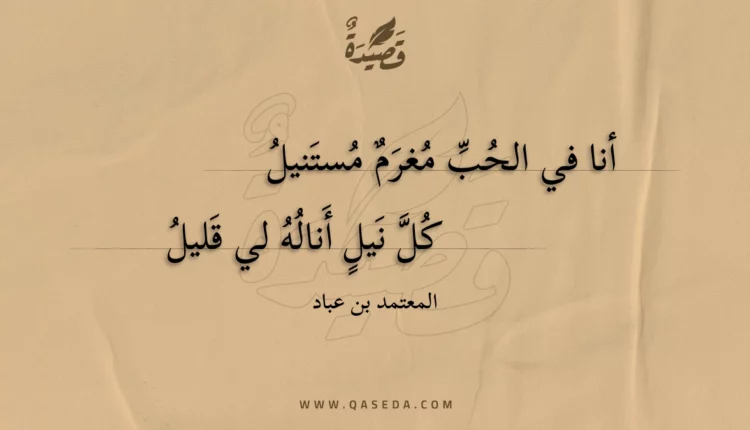 قَصِيْدَةٌ
أنا في الحُبِّ مُغرَمٌ مُستَنيلُ
كُلَّ نَيلٍ أَنالُهُ لي قَليلُ
المعتمد بن عباد
WWW.QASEDA.COM